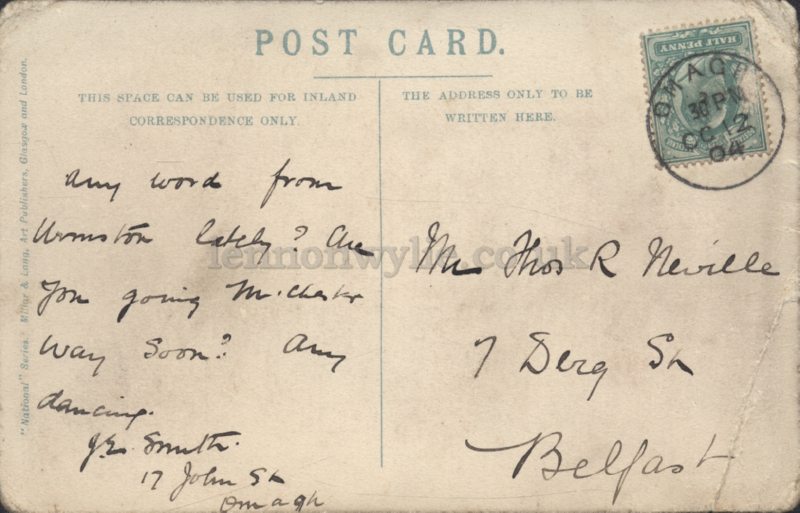 POST CARD.
THIS SPACE CAN BE USED FOR INLAND
CORRESPONDENCE ONLY.
THE ADDRESS ONLY TO BE
WRITTEN HERE.
HALF PENNY
OMAGH
30 PM
OC 12
04
"National" Series. Millar & Lang, Art Publishers, Glasgow and London.
Any word from
Urmston lately? Are
you going M.chester
way soon? Any
dancing.
J.E. Smith.
17 John St
Omagh
Thos R Neville
7 Derg St
Belfast
lennonwylie.co.uk